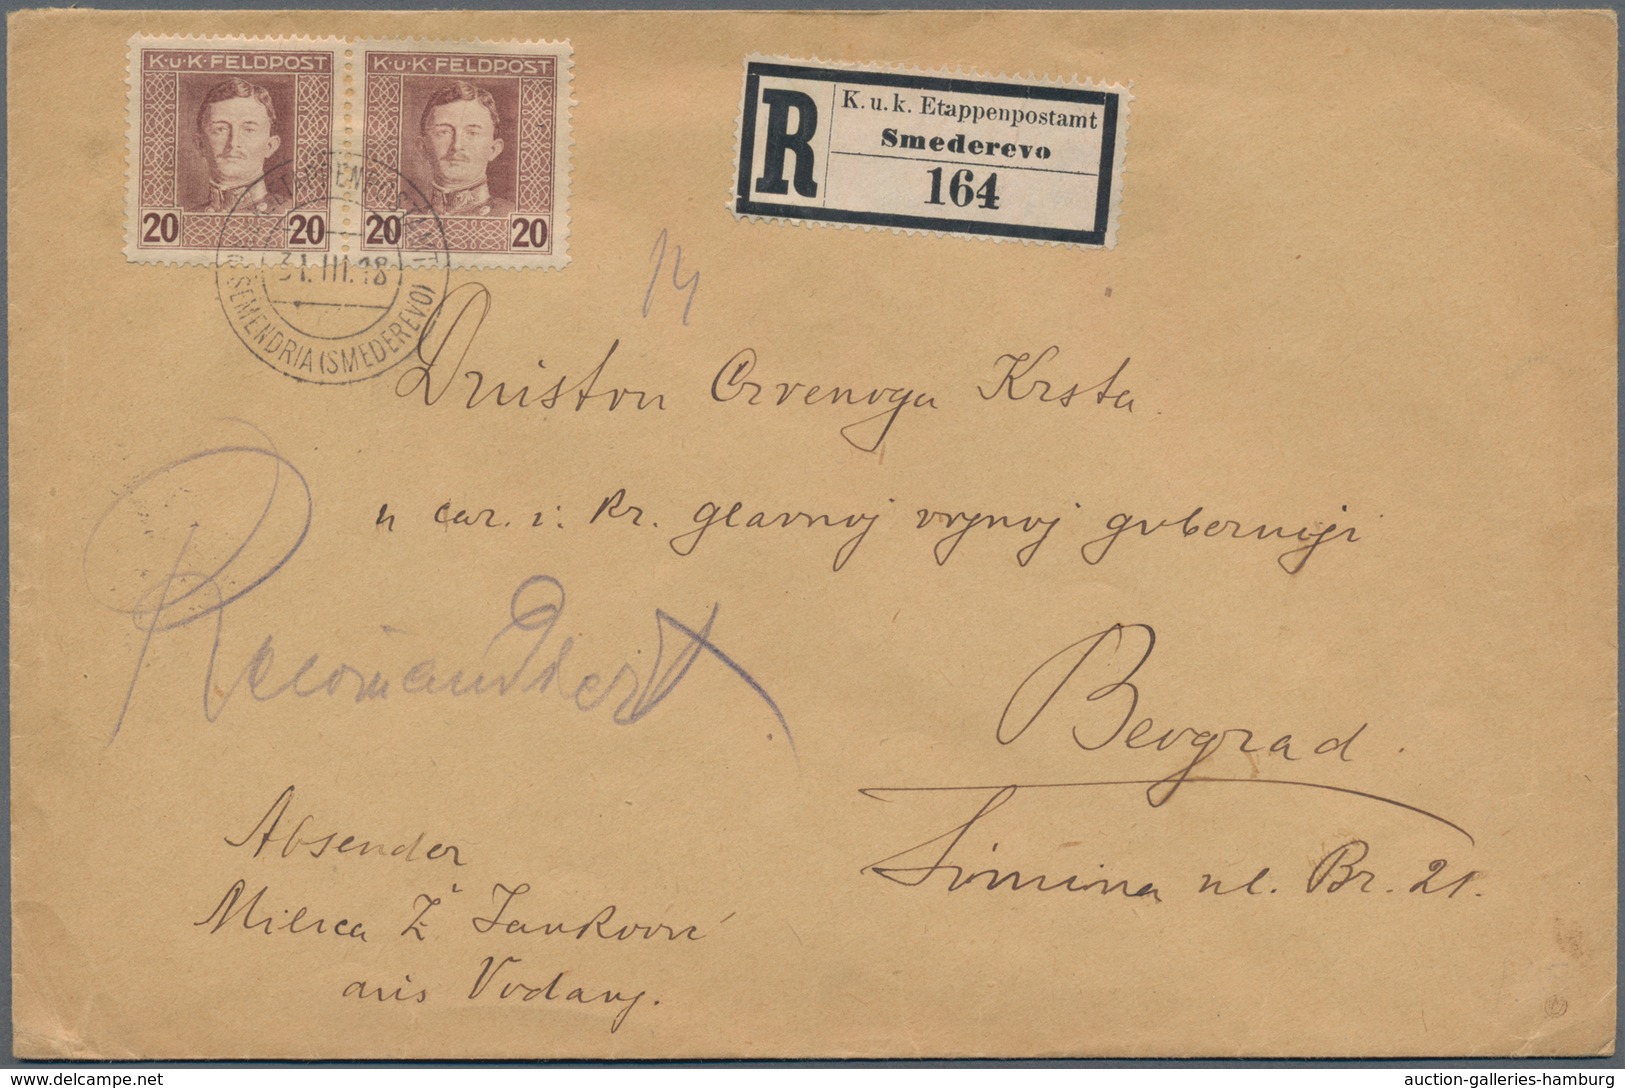 K.u.K. FELDPOST K.u.K. FELDPOST
20 20 20 20
31.III.18
SEMENDRIA (SMEDEREVO)
R
K. u. k. Etappenpostamt
Smederevo
164
14
Druistvu Crvenoga Krsta
u car. i. kr. glavnoj vojnoj guberniji
Recomandiert
Beograd.
Simina ul. Br. 21.
Absender
Milica Ž. Janković
aus Vodanj.
auction-galleries-hamburg